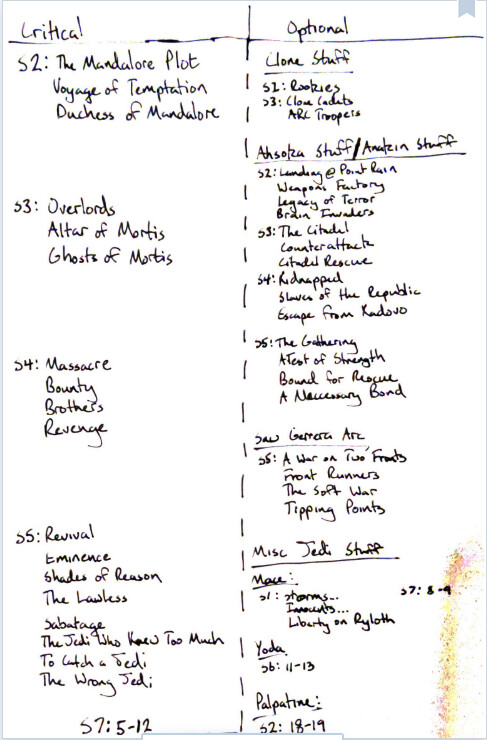 Critical
S2: The Mandalore Plot
Voyage of Temptation
Duchess of Mandalore
S3: Overlords
Altar of Mortis
Ghosts of Mortis
S4: Massacre
Bounty
Brothers
Revenge
S5: Revival
Eminence
Shades of Reason
The Lawless
Sabatage
The Jedi Who Knew Too Much
To Catch a Jedi
The Wrong Jedi
S7: 5-12
Optional
Clone Stuff
S1: Rookies
S3: Clone Cadets
ARC Troopers
Ahsoka Stuff/Anakin Stuff
S2: Landing @ Point Rain
Weapons Factory
Legacy of Terror
Brain Invaders
S3: The Citadel
Counterattack
Citadel Rescue
S4: Kidnapped
Slaves of the Republic
Escape from Kadavo
S5: The Gathering
A Test of Strength
Bound for Rescue
A Neccessary Bond
Saw Gerrera Arc
S5: A War on Two Fronts
Front Runners
The Soft War
Tipping Points
Misc Jedi Stuff
Mace:
S1: Storms...
Innocents...
Liberty on Ryloth
S7: 8-9
Yoda
S6: 11-13
Palpatine:
S2: 18-19